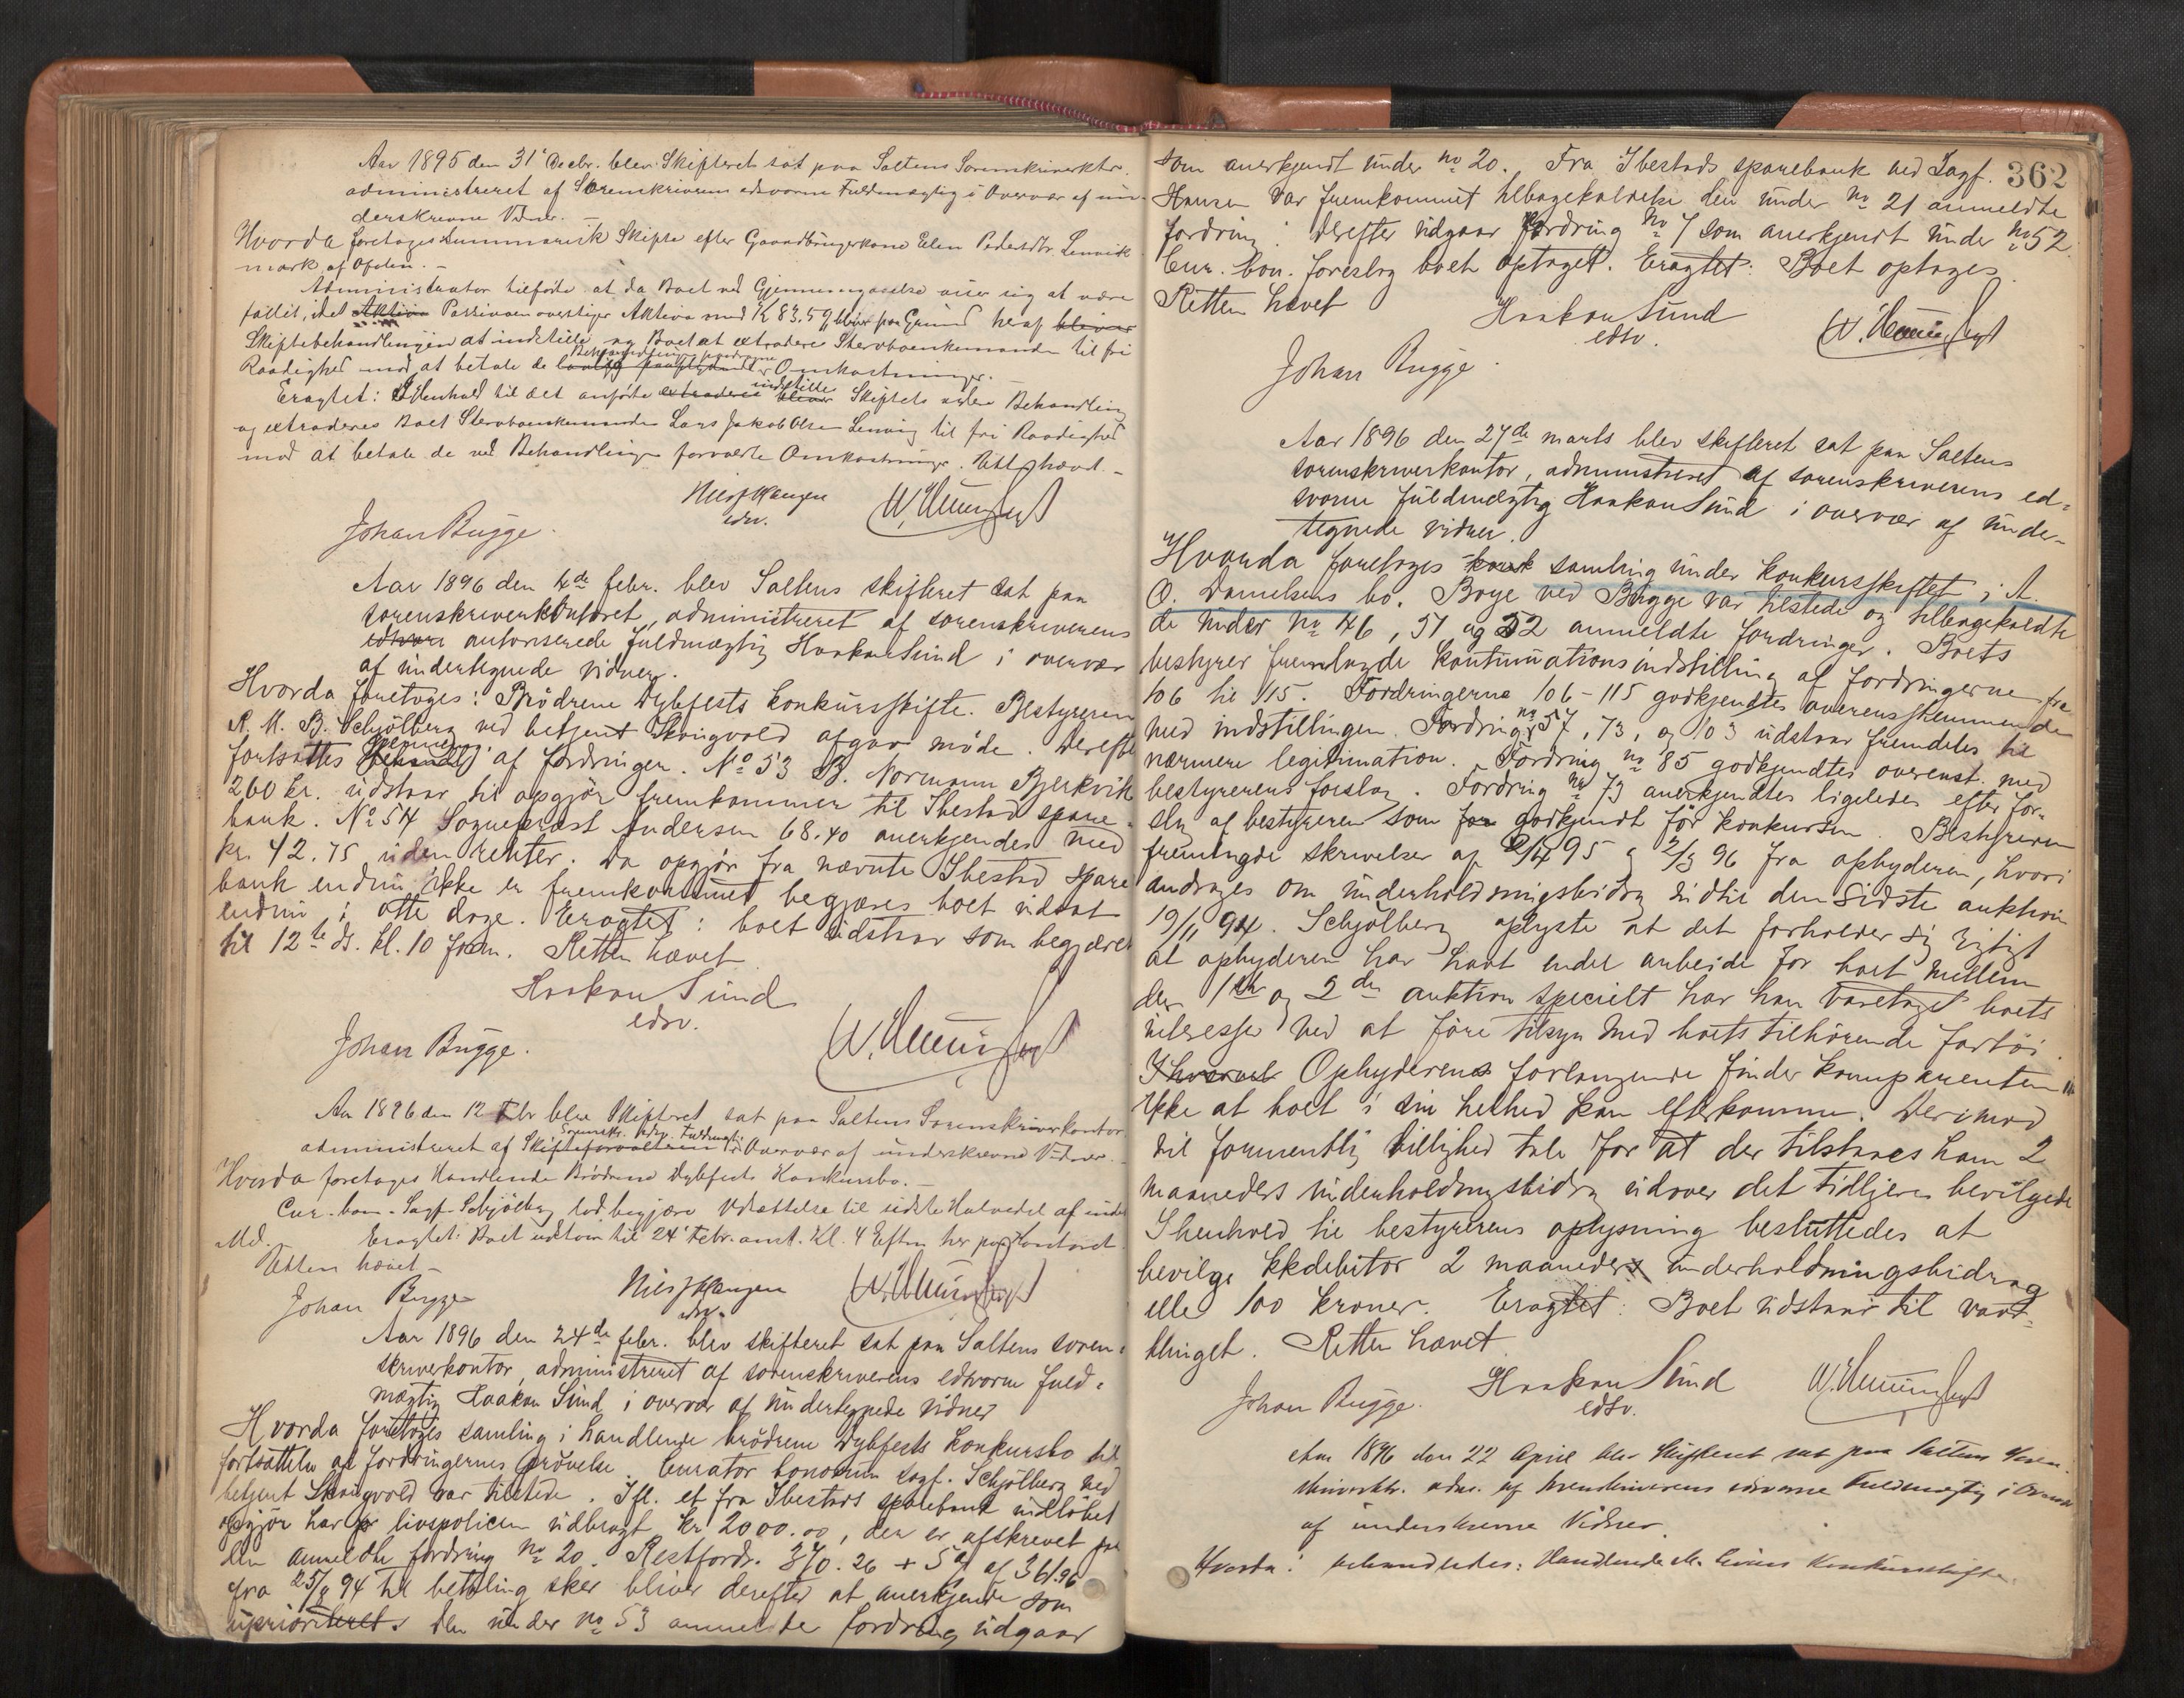 Aar 1895 den 31' Decbr. blev Skifteret sat paa Saltens Sorenskriverktr.
administreret af Sorenskriveren edsvorne Fuldmægtig i Overvær af un-
derskrevne Vidner. –
Hvorda foretoges Summarisk Skifte efter Gaardbrugerkone Elen Pedersdtr. Lenvik
mark af Ofoten. –
Administrator tilførte at da Boet ved Gjennemgaaelse viser sig at være
fallit, idet Aktiva Passiva overstiger Aktiva med K 83.59, bliver paa Grund heraf bliver
Skiftebehandlingen at indstille og Boet at extradere Stervboenkemanden til fri
Raadighed mod at betale de Omkostninger. –
Eragtet: I Henhold til det anførte extraderes bliver indstilles Skiftets videre Behandling
og extraderes Boet Stervboenkemanden Lars Jakob Olsen Lenvig til fri Raadighed
mod at betale de ved Behandlingen forvoldte Omkostninger. Retten hævet. –
Niels Hansen
edsv.
Johan Bugge.
Aar 1896 den 4de febr. blev Saltens skifteret sat paa
sorenskriverkontoret, administreret af sorenskriverens
edsvorn autoriserede fuldmægtig Haakon Sund i overvær
af undertegnede vidner.
Hvorda foretoges: Brødrene Dybfests konkursskifte. Bestyreren
R. M. B. Schjølberg ved betjent Skougvold afgav møde. Derefter
fortsattes af fordringer. No 53 B. Normann Bjerkvik
260 kr. udstaar til opgjør fremkommer til Ibestad spare-
bank. No 54 Sogneprest Andersen 68.40 anerkjendes med
kr. 42.75 uden renter. Da opgjør fra nævnte Ibestad spare
bank endnu ikke er fremkommet begjæres boet udsat
endnu i otte dage. Eragtet: boet udstaar som begjæret
til 12te ds. kl. 10 form. Retten hævet
Haakon Sund
edsv.
Johan Bugge.
Aar 1896 den 12 Febr blev Skifteret sat paa Saltens Sorenskriverkontor
administreret af Skifteforvalteren Sorenskr. edsv. Fuldmægt. i Overvær af underskrevne Vidner. –
Hvorda foretoges Handlende Brødrene Dybfests Konkursbo. –
Cur. bon. Sagf. Schjølberg lod begjære Udsættelse til sidste Halvedel af inde
Md. – Eragtet: Boet udstaar til 24' Febr. anst. Kl. 4 Eftm her paa Kontoret.
Retten hævet –
Johan Bugge
Niels Hansen
edsv.
Aar 1896 den 24de febr. blev skifteret sat paa Saltens soren-
skriverkontor, administreret af sorenskriverens edsvorne fuld-
mægtig Haakon Sund i overvær af undertegnede vidner
Hvorda foretoges samling i handlende brødrene Dybfests konkursbo til
fortsættelse af fordringernes prøvelse. Curator bonorum sagf. Schjølberg ved
betjent Skougvold var tilstede. Ifl. et fra Ibestads sparebank indløbet
opgjør har livspolicen udbragt kr. 2000.00, der er afskrevet paa
den anmeldte fordring no 20. Restfordr. 370.26 + 5% af 361.96
fra 25/8 94 til betaling sker bliver derefter at anerkjende som
uprioriteret. Den under no 53 anmeldte fordring udgaar
362
som anerkjendt under no 20. Fra Ibestads sparebank ved Sagf.
Hansen var fremkommet tilbagekaldelse den under no 21 anmeldte
fordring. Derefter udgaar fordring no 7 som anerkjendt under no 52
Cur. bon. foreslog boet optaget. Eragtet: Boet optages
Retten hævet
Haakon Sund
edsv.
Johan Bugge
Aar 1896 den 27de marts blev skifteret sat paa Saltens
sorenskriverkontor, administreret af sorenskriverens ed-
svorne fuldmægtig Haakon Sund i overvær af under-
tegnede vidner.
Hvorda foretoges konk samling under konkursskiftet i A.
O. Danielsens bo. Boye ved Bugge var tilstede og tilbagekaldte
de under no 46, 51 og 52 anmeldte fordringer. Boets
bestyrer fremlagde kontinuationsindstilling af fordringerne fra
106 til 115. Fordringerne 106-115 godkjendtes overensstemmende
med indstillingen. Fordring no 57, 73, og 103 udstaar fremdeles til
nærmere legitimation. Fordring no 85 godkjendtes overenst. med
bestyrerens forslag. Fordring no 73 anerkjendtes ligeledes efter for-
slag af bestyreren som for godkjendt før konkursen. Bestyreren
fremlagde skrivelser af 95 og 2/3 96 fra opbyderen, hvori
andrages om underholdningsbidrag indtil den sidste auktion
19/11 94. Schjølberg oplyste at det forholder sig rigtigt
at opbyderen har havt endel arbeide for boet mellem
den 1ste og 2den auktion specielt har han varetaget boets
interesse ved at føre tilsyn med boets tilhørende fartøi.
Ihvorvel Opbyderens forlangende finder komparenten
ikke at boet i sin helhed kan efterkomme. Derimod
vil formentlig billighed tale for at der tilstaaes ham 2
maaneders underholdningsbidrag udover det tidligere bevilgede
I henhold til bestyrerens oplysning besluttedes at
bevilge kkdebitor 2 maaneders underholdningsbidrag
eller 100 kroner. Eragtet: Boet udstaar til vaar-
thinget. Retten hævet.
Johan Bugge.
Haakon Sund
edsv.
Aar 1896 den 22 April blev Skifteret sat paa Saltens Soren-
skriverktr. adm. af Sorenskriverens edsvorne Fuldmægtig i Overvær
af underskrevne Vidner.
Hvorda: behandledes: Handlende Konkursskifte.